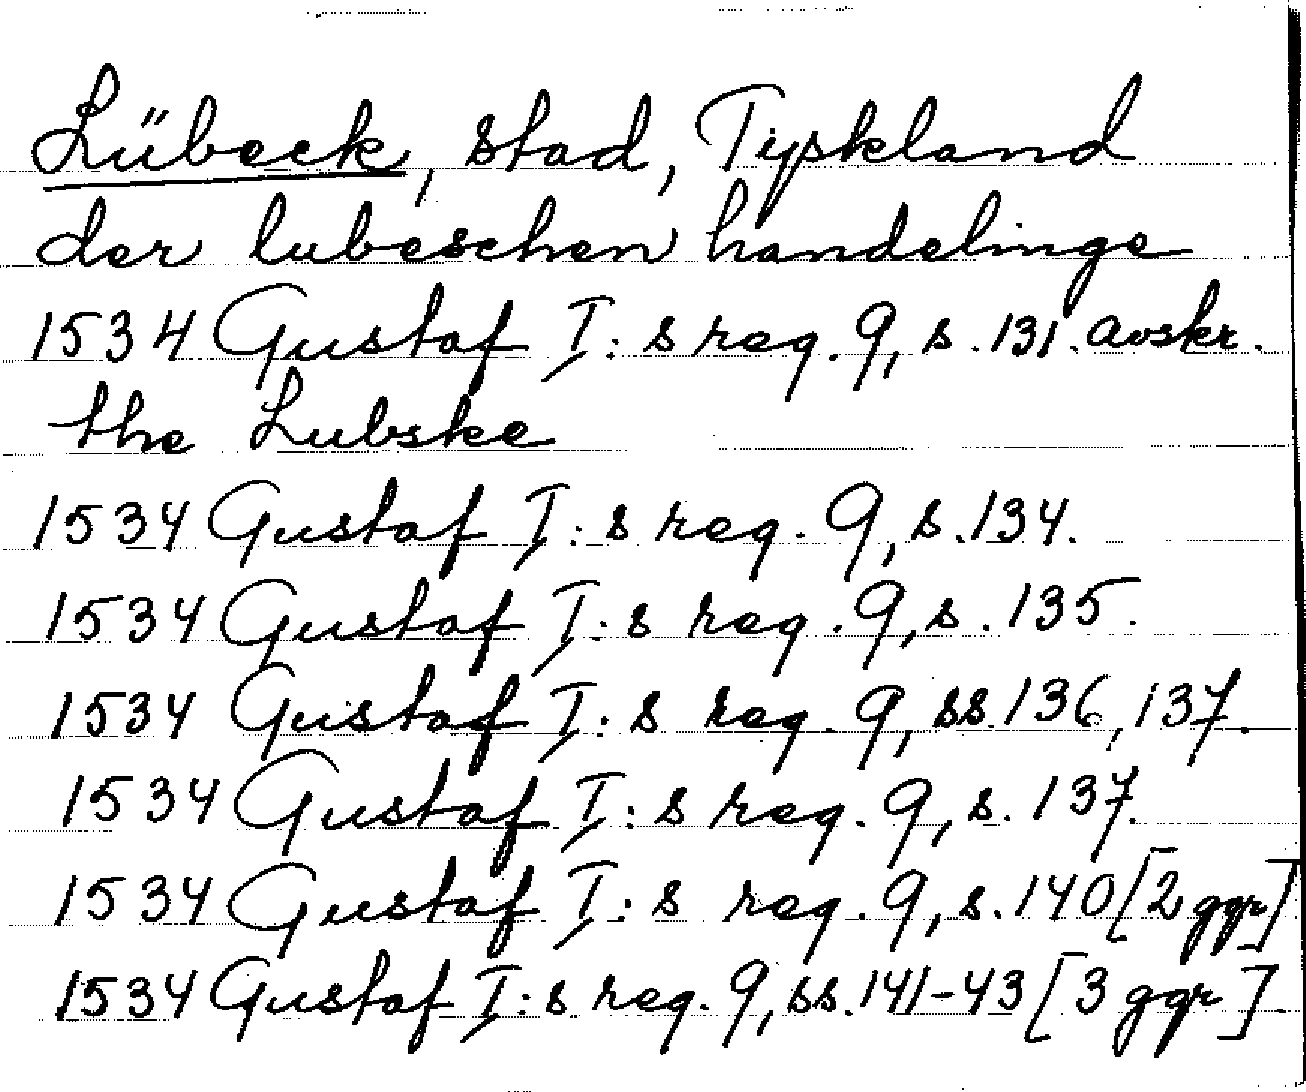 Lübeck, stad, Tyskland
der lubeschen handelinge
1534 Gustaf I:s reg. 9, s. 131. avskr.
the Lubske
1534 Gustaf I:s reg. 9, s. 134.
1534 Gustaf I:s reg. 9, s. 135.
1534 Gustaf I:s reg. 9, ss. 136, 137.
1534 Gustaf I:s reg. 9, s. 137.
1534 Gustaf I:s reg. 9, s. 140 [2 ggr]
1534 Gustaf I:s reg. 9, ss. 141-43 [3 ggr]